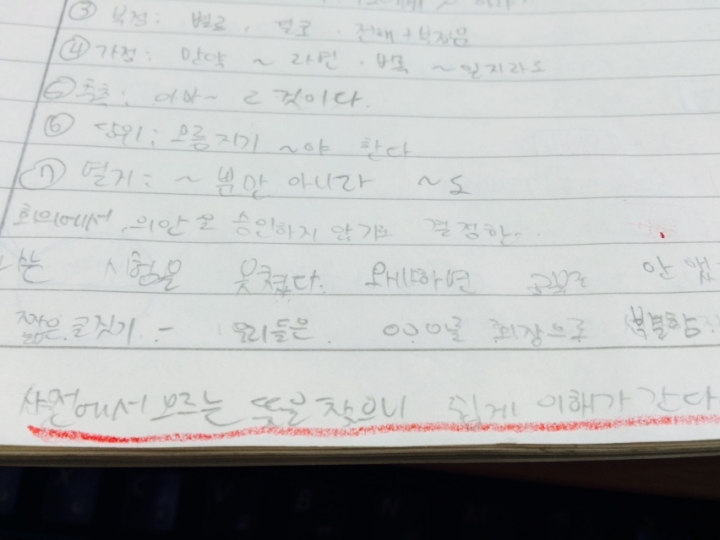 ③ 부정: 별로, 결코, 전혀 + 부정응
④ 가정: 만약 ~ 라면, 비록 ~ 일지라도
⑤ 추측: 아마 ~ ㄹ 것이다.
⑥ 당위: 모름지기 ~야 한다
⑦ 열거: ~ 뿐만 아니라 ~도
회의에서, 의안을 승인하지 않기로 결정함.
나는 시험을 못쳤다. 왜냐하면 공부 안
짧은 글짓기. - 우리들은 회장으로
사전에서 모르는 뜻을 찾으니 쉽게 이해가 간다